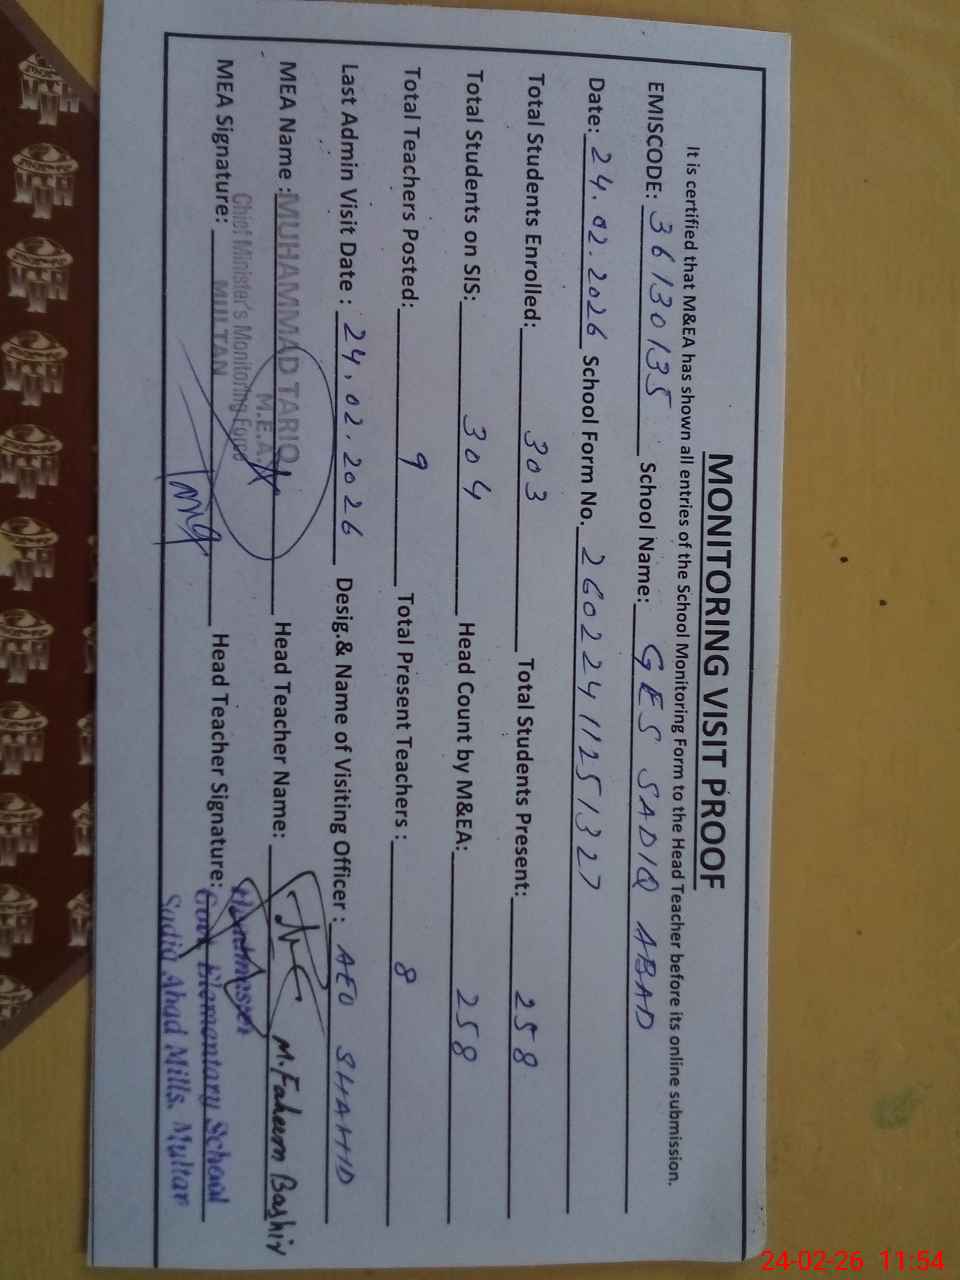 MONITORING VISIT PROOF
It is certified that M&EA has shown all entries of the School Monitoring Form to the Head Teacher before its online submission.
EMISCODE: 36130135 School Name: GES SADIQ ABAD
Date: 24.02.2026 School Form No. 26022411251327
Total Students Enrolled: 303 Total Students Present: 258
Total Students on SIS: 304 Head Count by M&EA: 258
Total Teachers Posted: 9 Total Present Teachers : 8
Last Admin Visit Date : 24.02.2026 Desig.& Name of Visiting Officer : AEO SHAHID
MEA Name : MUHAMMAD TARIQ Head Teacher Name: M. Faheem Bashir
M.E.A.
Chief Minister's Monitoring Force
MEA Signature: MULTAN Head Teacher Signature:
Headmaster
Govt. Elementary School
Sadiq Abad Mills. Multan
24-02-26 11:54